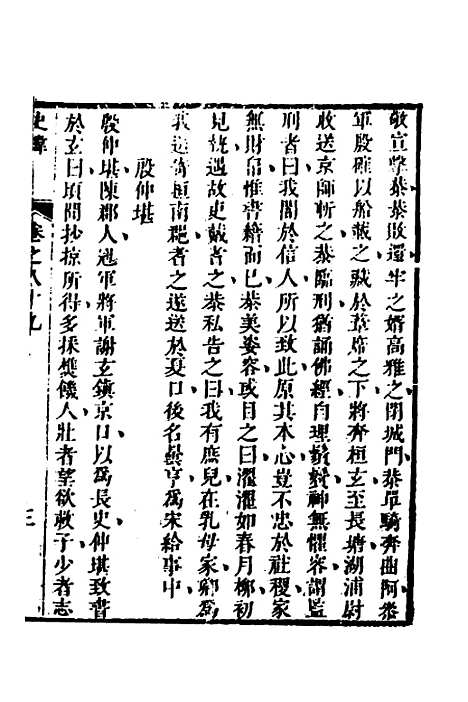 敬宣擊恭恭敗還牢之婿高雅之閉城門恭單騎奔曲阿恭
軍殷確以船載之藏於葦席之下將奔桓玄至長塘湖浦尉
收送京師斬之恭臨刑猶誦佛經自理鬚鬢神無懼容謂監
刑者曰我闇於信人所以致此原其本心豈不忠於社稷家
無財帛惟書籍而已恭美姿容或目之曰濯濯如春月柳初
見執遇故吏戴耆之恭私告之曰我有庶兒在乳母家卿爲
我送寄桓南郡耆之遂送於夏口後名曇亨爲宋給事中
殷仲堪
殷仲堪陳郡人冠軍將軍謝玄鎮京口以爲長史仲堪致書
於玄曰頃聞抄掠所得多採樵饑人壯者望欲救子少者志
史緯
卷之八十九
三